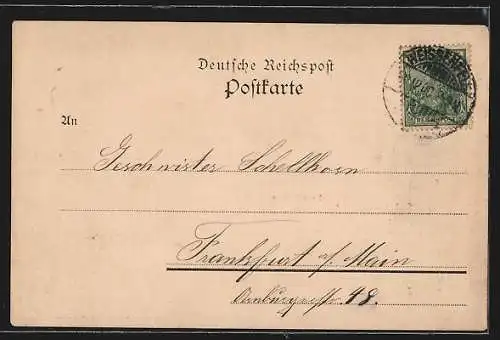 Deutsche Reichspost
Postkarte
An
Geschwister Schellhorn
Frankfurt a/ Main
48.